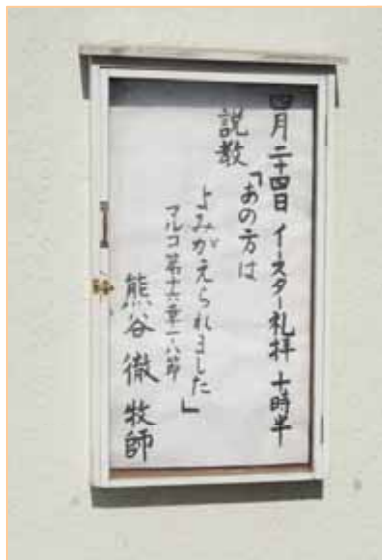 四月二十四日 イースター礼拝 十時半
説教「あの方は
よみがえられました」
マルコ第十六章一-八節
熊谷 徹 牧師